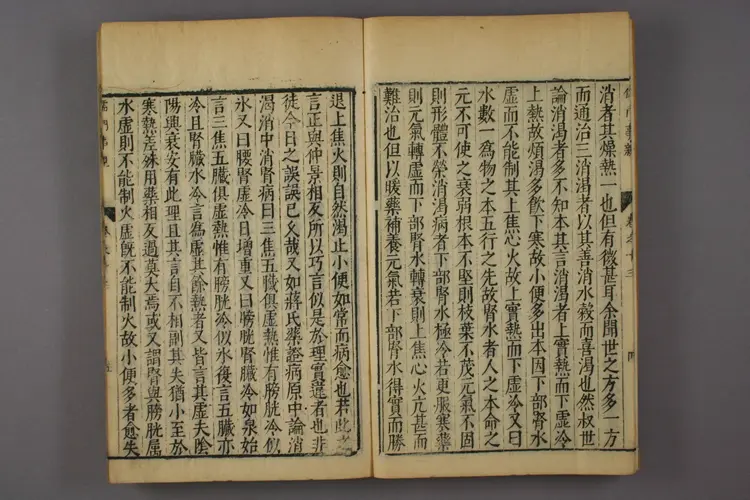 消者其燥熱一也但有微甚耳余聞世之方多一方
而通治三消渴者以其善消水穀而喜渴也然叔世
論消渴者多不知本其言消渴者上實熱而下虛冷
上熱故煩渴多飲下寒故小便多出本因下部腎水
虛而不能制其上焦心火故上實熱而下虛冷又曰
水數一爲物之本五行之先故腎水者人之本命之
元不可使之衰弱根本不堅則枝葉不茂元氣不固
則形體不榮消渴病者下部腎水極冷若更服寒藥
則元氣轉虛而下部腎水轉衰則上焦心火亢甚而
難治也但以暖藥補養元氣若下部腎水得實而勝
退上焦火則自然渴止小便如常而病愈也若此之
言正與仲景相反所以巧言似是於理實違者也非
徒今日之誤誤已久哉又如蔣氏藥證病原中論消
渴消中消腎病曰三焦五臟俱虛熱惟有膀胱冷似
氷又曰腰腎虛冷日增重又曰膀胱腎臟冷如泉始
言三焦五臟俱虛熱惟有膀胱冷似氷復言五臟亦
冷且腎臟水冷言爲虛其餘熱者又皆言其虛夫陰
陽興衰安有此理且其言自不相副其失猶小至於
寒熱差殊用藥相反過莫大焉或又謂腎與膀胱屬
水虛則不能制火虛旣不能制火故小便多者愈失